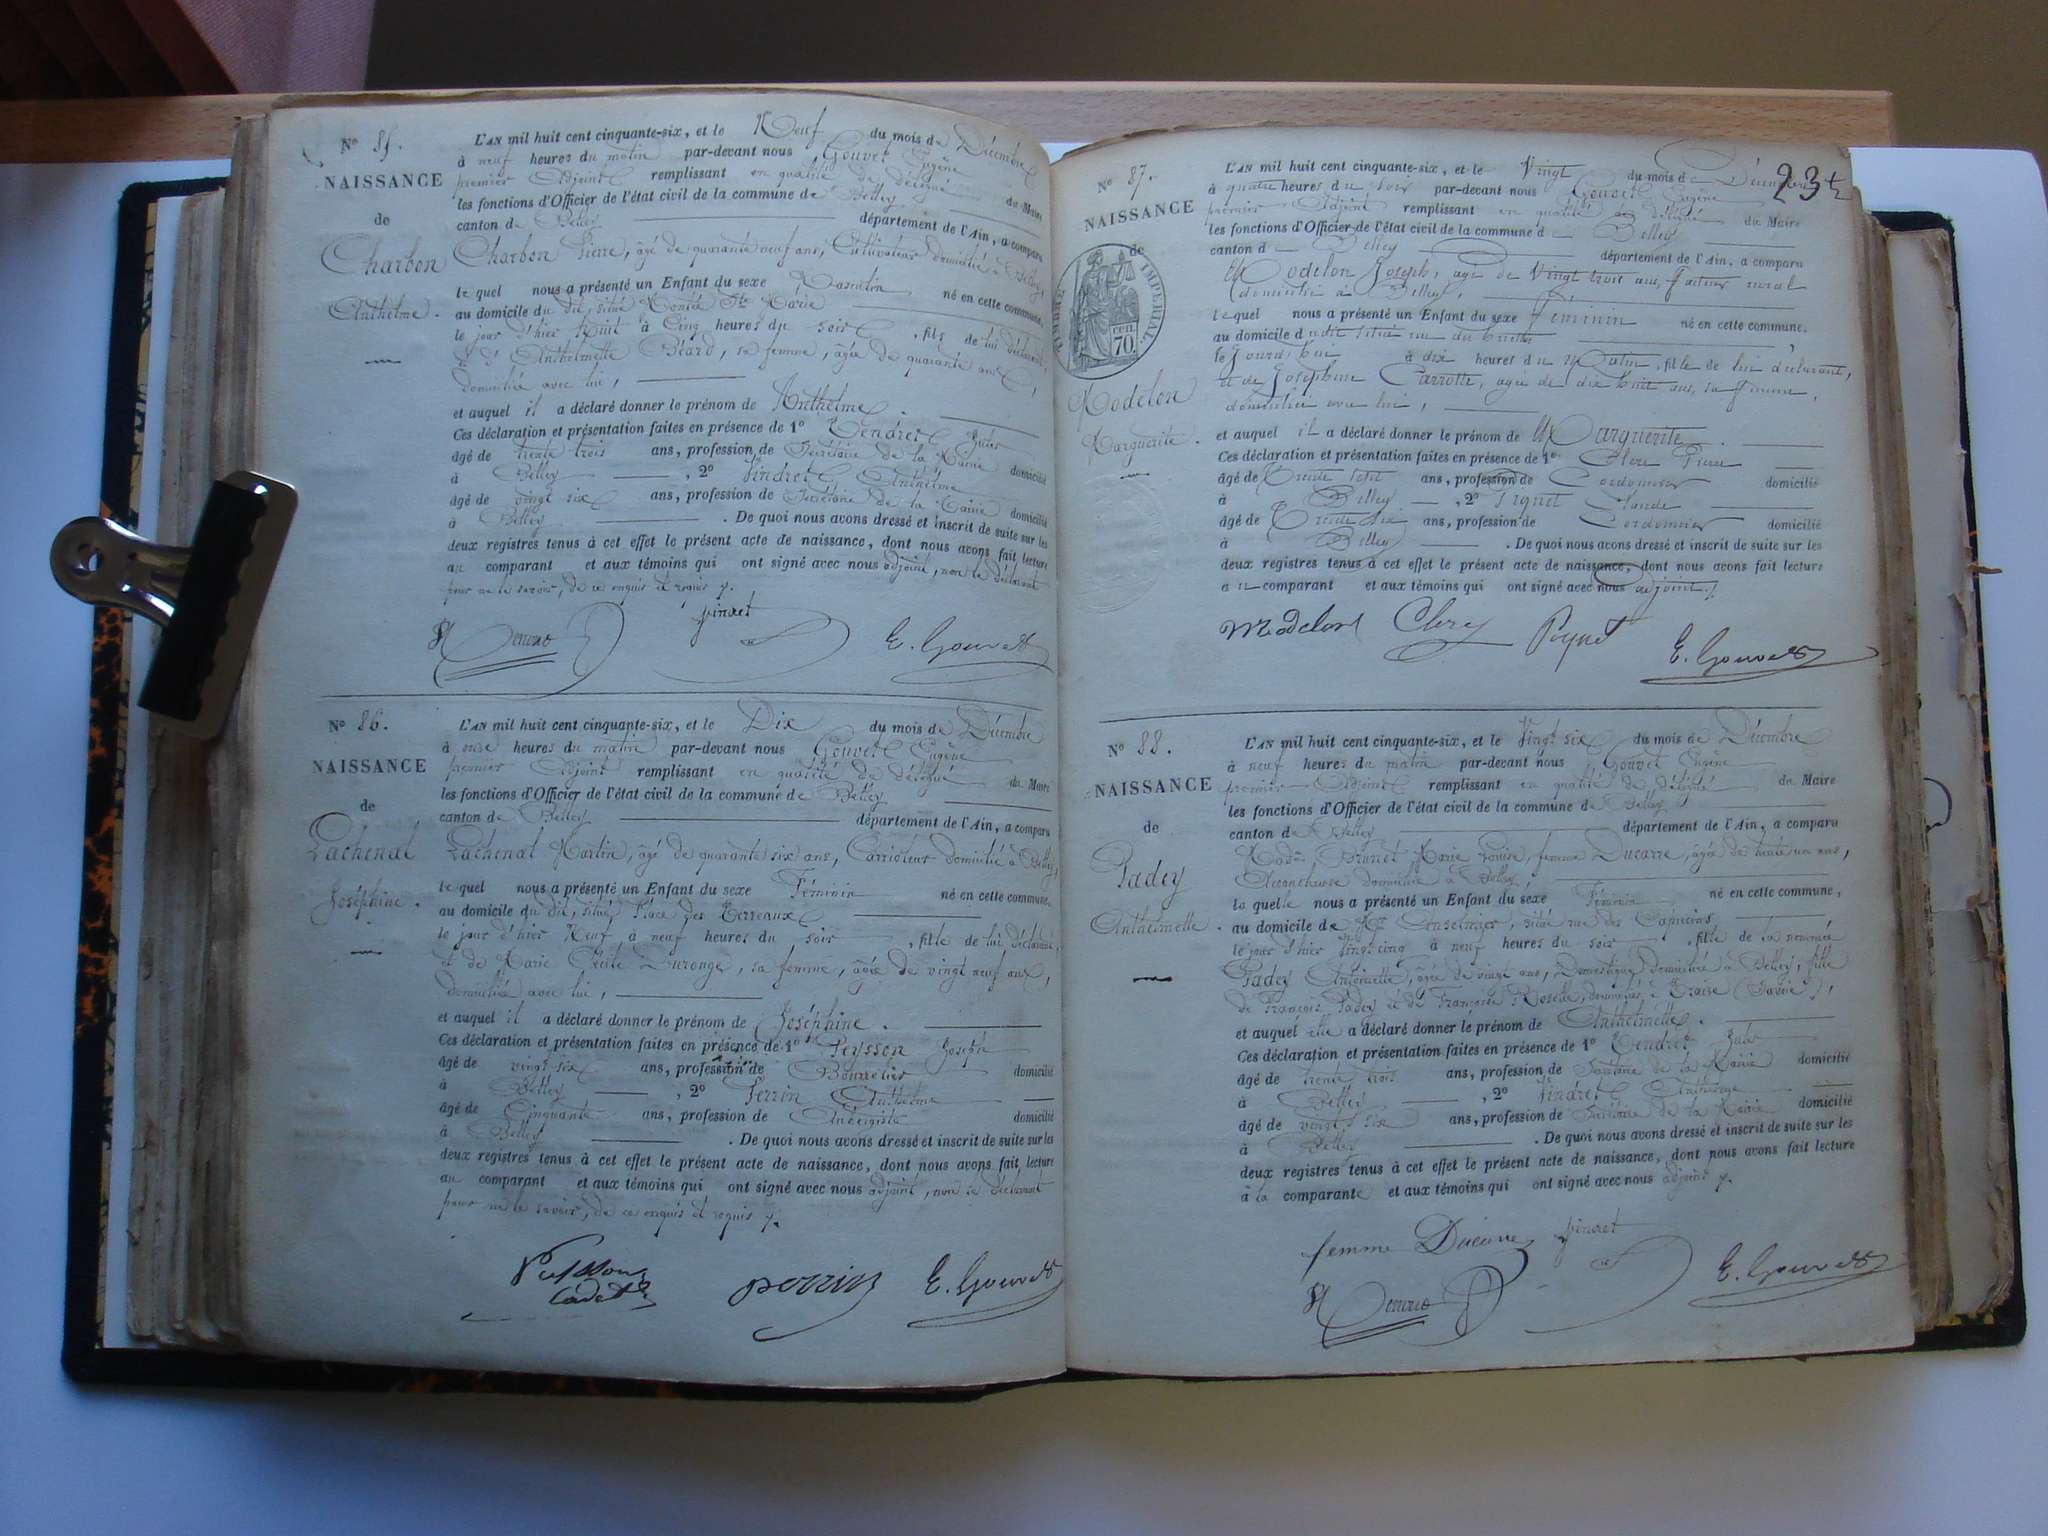 Nº 85.
NAISSANCE
de
Charbon
Anthelme.
L'AN mil huit cent cinquante-six, et le Neuf du mois de Décembre
à neuf heures du matin par-devant nous Gouvet Eugène
premier Adjoint remplissant en qualité de délégué du Maire
les fonctions d'Officier de l'état civil de la commune de Belley
canton de Belley département de l'Ain, a comparu
Charbon Pierre, âgé de quarante neuf ans, Cultivateur domicilié à Belley,
le quel nous a présenté un Enfant du sexe Masculin né en cette commune,
au domicile du dit, situé Montée Ste Marie
le jour d'hier huit à Cinq heures du soir, fils de lui déclarant,
et d'Anthelmette Béard, sa femme, âgée de quarante ans,
domiciliée avec lui,
et auquel il a déclaré donner le prénom de Anthelme.
Ces déclaration et présentation faites en présence de 1º Tendret Jules
âgé de trente trois ans, profession de Secrétaire de la Mairie domicilié
à Belley, 2º Pindret Anthelme
âgé de vingt six ans, profession de Secrétaire de la Mairie domicilié
à Belley. De quoi nous avons dressé et inscrit de suite sur les
deux registres tenus à cet effet le présent acte de naissance, dont nous avons fait lecture
au comparant et aux témoins qui ont signé avec nous adjoint, non le déclarant
pour ne le savoir, de ce enquis et requis
pindret E. Gouvet
Nº 86.
NAISSANCE
de
Lachenal
Joséphine.
L'AN mil huit cent cinquante-six, et le Dix du mois de Décembre
à onze heures du matin par-devant nous Gouvet Eugène
premier Adjoint remplissant en qualité de délégué du Maire
les fonctions d'Officier de l'état civil de la commune de Belley
canton de Belley département de l'Ain, a comparu
Lachenal Martin, âgé de quarante six ans, Carrioteur domicilié à Belley,
le quel nous a présenté un Enfant du sexe Féminin né en cette commune,
au domicile du dit, situé Place des Terreaux
le jour d'hier Neuf, à neuf heures du soir, fille de lui déclarant,
et de Marie Cécile Durange, sa femme, âgée de vingt neuf ans,
domiciliée avec lui,
et auquel il a déclaré donner le prénom de Joséphine.
Ces déclaration et présentation faites en présence de 1º Peysson Joseph
âgé de vingt six ans, profession de Bourrelier domicilié
à Belley, 2º Perrin Anthelme
âgé de Cinquante ans, profession de Aubergiste domicilié
à Belley. De quoi nous avons dressé et inscrit de suite sur les
deux registres tenus à cet effet le présent acte de naissance, dont nous avons fait lecture
au comparant et aux témoins qui ont signé avec nous adjoint, non le déclarant
pour ne le savoir, de ce enquis et requis
cadet perrin E. Gouvet
23
Nº 87.
NAISSANCE
de
TIMBRE IMPERIAL
70 cen.
Modelon
Marguerite.
L'AN mil huit cent cinquante-six, et le Vingt du mois de Décembre
à quatre heures du soir par-devant nous Gouvet Eugène
premier Adjoint remplissant en qualité de délégué du Maire
les fonctions d'Officier de l'état civil de la commune de Belley
canton de Belley département de l'Ain, a comparu
Modelon Joseph, âgé de Vingt trois ans, facteur rural
domicilié à Belley,
le quel nous a présenté un Enfant du sexe Féminin né en cette commune,
au domicile du dit situé rue
le Jourd'hui à dix heures du Matin, fille de lui déclarant,
et de Josephine Carrotte, agée de dix huit ans, sa femme,
domiciliée avec lui,
et auquel il a déclaré donner le prénom de Marguerite
Ces déclaration et présentation faites en présence de 1º Clerc Pierre
âgé de Trente sept ans, profession de Cordonnier domicilié
à Belley, 2º Pignet Claude
âgé de Trente six ans, profession de Cordonnier domicilié
à Belley. De quoi nous avons dressé et inscrit de suite sur les
deux registres tenus à cet effet le présent acte de naissance, dont nous avons fait lecture
au comparant et aux témoins qui ont signé avec nous adjoint
Modelon Clerc Pignet E. Gouvet
Nº 88.
NAISSANCE
de
Padey
Anthelmette.
L'AN mil huit cent cinquante-six, et le Vingt six du mois de Décembre
à neuf heures du matin par-devant nous Gouvet Eugène
premier Adjoint remplissant en qualité de délégué du Maire
les fonctions d'Officier de l'état civil de la commune de Belley
canton de Belley département de l'Ain, a comparu
Madme Brunet Marie Louise, femme Ducarre, âgée de trente un ans,
Accoucheuse domiciliée à Belley,
la quelle nous a présenté un Enfant du sexe Féminin né en cette commune,
au domicile de Mr Anselmier, situé rue des Capucins
le jour d'hier vingt cinq à neuf heures du soir, fille de la nommée
Padey Antoinette, âgée de vingt ans, Domestique domiciliée à Belley, fille
de François Padey et de Françoise Roselle, domiciliés à Traize (Savoie),
et auquel elle a déclaré donner le prénom de Anthelmette.
Ces déclaration et présentation faites en présence de 1º Tendret Jules
âgé de trente trois ans, profession de Secrétaire de la Mairie domicilié
à Belley, 2º Pindret Anthelme
âgé de vingt six ans, profession de Secrétaire de la Mairie domicilié
à Belley. De quoi nous avons dressé et inscrit de suite sur les
deux registres tenus à cet effet le présent acte de naissance, dont nous avons fait lecture
à la comparante et aux témoins qui ont signé avec nous adjoint
femme Ducarre pindret
E. Gouvet